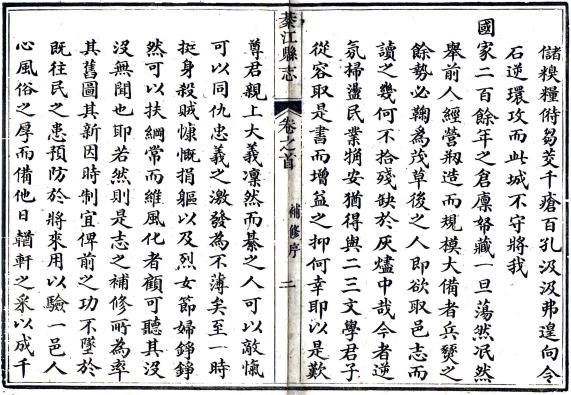 儲糗糧偫芻茭千瘡百孔汲汲弗遑向令
石逆環攻而此城不守將我
國家二百餘年之倉廩帑藏一旦蕩然泯然
舉前人經營剏造而規模大備者兵燹之
餘勢必鞠爲茂草後之人即欲取邑志而
讀之幾何不拾殘缺於灰燼中哉今者逆
氛掃盪民業稍安猶得與二三文學君子
從容取是書而增益之抑何幸耶以是歎
綦江縣志
卷之首
補修序
二
尊君親上大義凜然而綦之人可以敵愾
可以同仇忠義之激發為不薄矣至一時
挺身殺賊慷慨捐軀以及烈女節婦錚錚
然可以扶綱常而維風化者顧可聽其沒
沒無聞也耶若然則是志之補修所為率
其舊圖其新因時制宜俾前之功不墜於
既往民之患預防於將來用以驗一邑人
心風俗之厚而備他日輶軒之采以成千